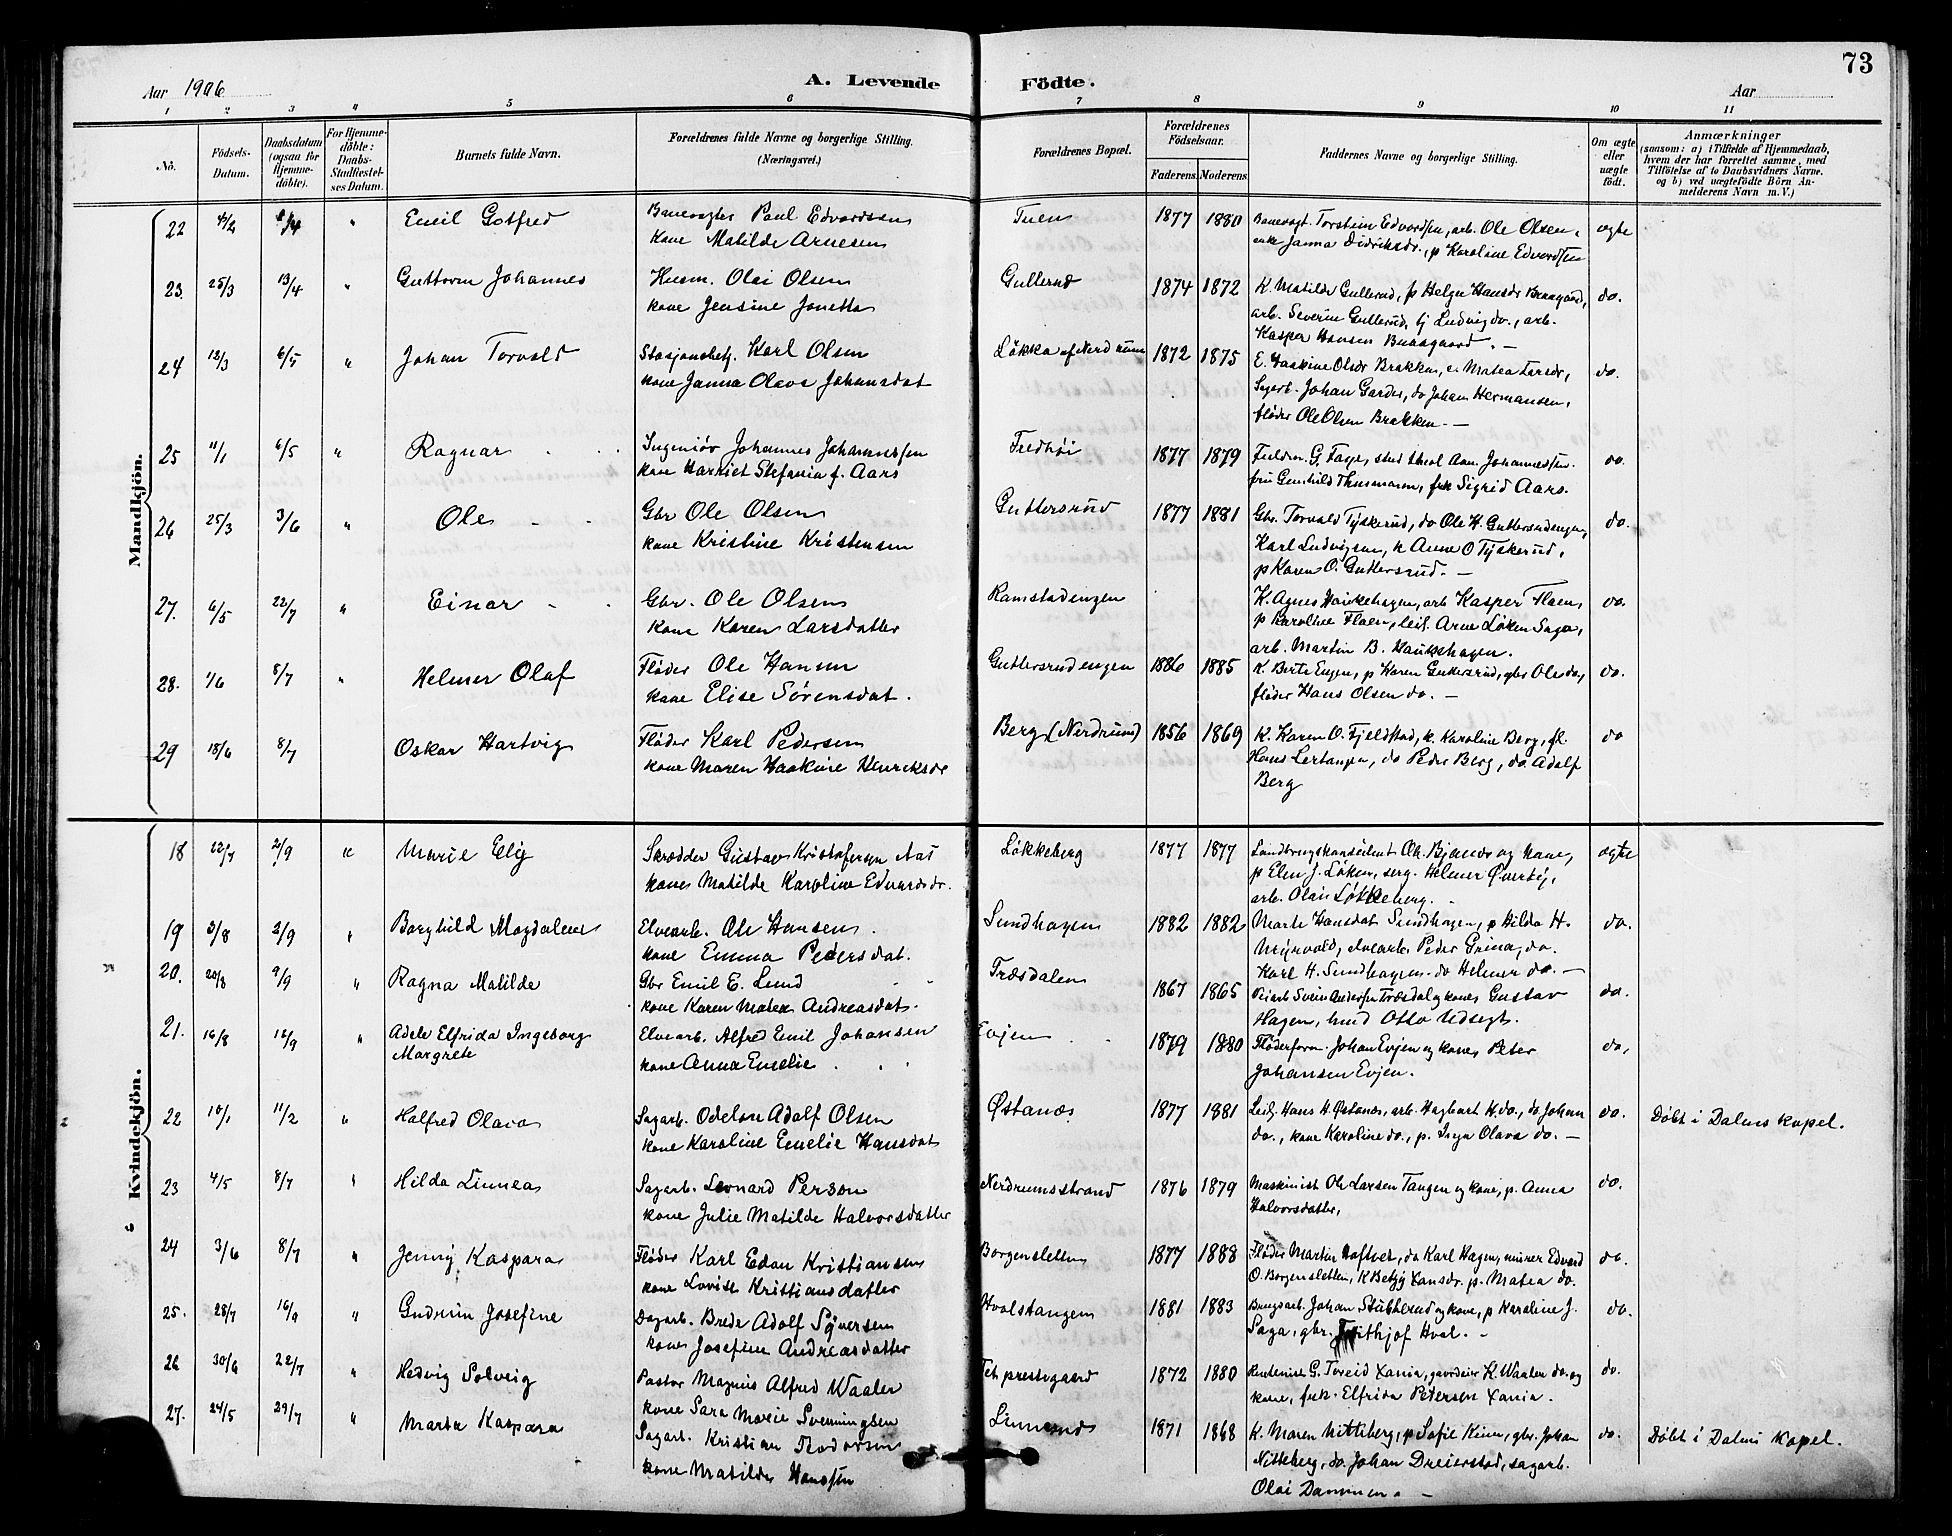 73
Aar 1906
A. Levende Födte.
Aar
1 2 3 4 5 6 7 8 9 10 11
No.
Födsels-Datum.
Daabsdatum (ogsaa for Hjemme-döbte).
For Hjemme-döbte: Daabs-Stadfæstel-ses Datum.
Barnets fulde Navn.
Forældrenes fulde Navne og borgerlige Stilling. (Næringsvei.)
Forældrenes Bopæl.
Forældrenes Födselsaar.
Faderens. Moderens.
Faddernes Navne og borgerlige Stilling.
Om ægte eller uægte födt.
Anmærkninger
(saasom: a) i Tilfælde af Hjemmedaab,
hvem der har forrettet samme, med
Tilföielse af to Daabsvidners Navne.
og b) ved uægtefödte Börn An-
melderens Navn m. V.)
Mandkjön.
22 4/2 " Emil Gotfred Banevogter Paul Edvardssen Tuen 1877 1880 Banevogt. Torstein Edvardsen, arb. Ole Olsen, ægte
kone Matilde Arnesen enke Janna Didriksdr., p Karoline Edvardsen
23. 25/3 13/4 " Guttorm Johannes Husm. Olai Olsen Gullerud 1874 1872 K. Matilde Gullerud, p Helga Hansdr Braagaard, do.
kone Jensine Jonetta arb. Severin Gullerud, tj Ludvig do., arb.
Kasper Hansen Braagaard. —
24 12/3 6/5 " Johan Torvald Stasjonsbetj. Karl Olsen Løkka af Nerdrum 1872 1875 E. Haakine Olsdr Brakken, e. Matea Larsdr, do.
kone Janna Olava Johansdat Sagarb. Johan Garder, do Johan Hermansen,
fløder Ole Olsen Brakken. —
25 11/1 6/5 " Ragnar Ingeniør Johannes Johannessen Fredhøi 1877 1879 Fuldm. G. Faye, stud theol Aan. Johannessen. do.
kone Harriet Stefania f. Aars fru Gunhild Thusmann, frk Sigrid Aars.
26 25/3 3/6 " Ole Gbr Ole Olsen Guttersrud 1877 1881 Gbr. Torvald Tyskerud, do Ole H. Guttersrudengen, do.
kone Kristine Kristensen Karl Ludvigsen, k Anne O Tyskerud,
p Karen O. Guttersrud. —
27. 6/5 22/7 " Einar Gbr. Ole Olsen Ramstadengen K. Agnes Haukehagen, arb Kasper Flaen, do.
kone Karen Larsdatter p Karoline Flaen, leil. Arne Løken Saga,
arb. Martin B. Haukehagen.
28. 1/6 8/7 " Helmer Olaf Fløder Ole Hansen Guttersrudengen 1886 1885 K. Berte Engen, p Karen Guttersrud, gbr Ole do, do.
kone Elise Sørensdat. fløder Hans Olsen do. —
29 18/6 8/7 Oskar Hartvig Fløder Karl Pedersen Berg (Nerdrum) 1856 1869 K. Karen O. Fjeldstad, k. Karoline Berg, fl. do
kone Maren Haakine Henriksdr Hans Lertangen, do Peder Berg, do. Adolf
Berg
Kvindekjön.
18 22/7 2/9 " Marie Elig Skrædder Gustav Kristofersen Aas Løkkeberg 1877 1877 Landbrugskonsulent Ole Bjanes og kone, ægte
kone Matilde Karoline Edvardsdr. p Elen J. Løken, serg. Helmer Øverby,
arb. Olai Løkkeberg.
19 2/9 " Borghild Magdalene Elvearb. Ole Hansen Sundhagen 1882 1882 Marte Hansdat Sundhagen, p Hilda H. do.
kone Emma Pedersdat. Myrvold, elvearb. Peder Grina, do.
Karl H. Sundhagen. do Helmer do. —
20. 20/8 9/9 " Ragna Matilde Gbr Emil E. Lund Træsdalen 1867 1865 Svein Andersen Træsdal og kone, Gustav do.
kone Karen Matea Andreasdat. Hagen, Otto Udsegt.
21. 16/8 12/9 " Adele Elfrida Ingeborg Elvearb. Alfred Emil Johansen Evjen 1879 1880 Fløderform. Johan Evjen og kone, Peter do.
Margrete kone Anna Emelie Johansen Evjen.
22 10/1 11/2 " Halfred Olava Sagarb. Odelon Adolf Olsen Østanæs 1877 1881 Leilg. Hans H. Østanæs, arb. Hagbart H. do., do Johan do. Døbt i Dalens Kapel.
kone Karoline Emelie Hansdat do., kone Karoline do., p. Inga Olava do. —
23 4/5 8/7 " Hilda Linnea Sagarb. Leonard Person Nerdrumsstrand 1876 1879 Maskinist Ole Larsen Tangen og kone, p. Anna do.
kone Julie Matilde Halvorsdatter Halvorsdatter,
24 3/6 8/7 " Jenny Kaspara Fløder Karl Edon Kristiansen Borgensletten 1877 1888 Fløder Martin Toftvet, do Karl Hagen, murer Edvard do.
kone Lovise Kristiansdatter O. Borgensletten, K Betzy Hansdr. p. Matea do.
25. 28/7 16/9 " Gudrun Josefine Dagarb. Brede Adolf Syversen Hvalstangen 1881 1883 Brugsarb. Johan Stubberud og kone, p Karoline J. do.
kone Josefine Andreasdatter Saga, gbr. Fritjof Hval. —
26 30/6 22/7 " Hedvig Solveig Pastor Magnus Alfred Waaler Fet prestegaard 1872 1880 Rentenist G. Toreid Xania, gaardeier K. Waaler do. og do.
kone Sara Marie Svenningsen kone, frk. Elfrida Petersen Xania.
27. 24/5 29/7 " Marta Kaspara Sagarb. Kristian Teodorsen Linnerud 1871 1868 K. Maren Nitteberg, p Sofie Kinn, gbr. Johan do. Døbt i Dalens Kapel.
kone Matilde Hansen Nitteberg, do. Johan Dreierstad, sagarb.
Olai Dammen. —